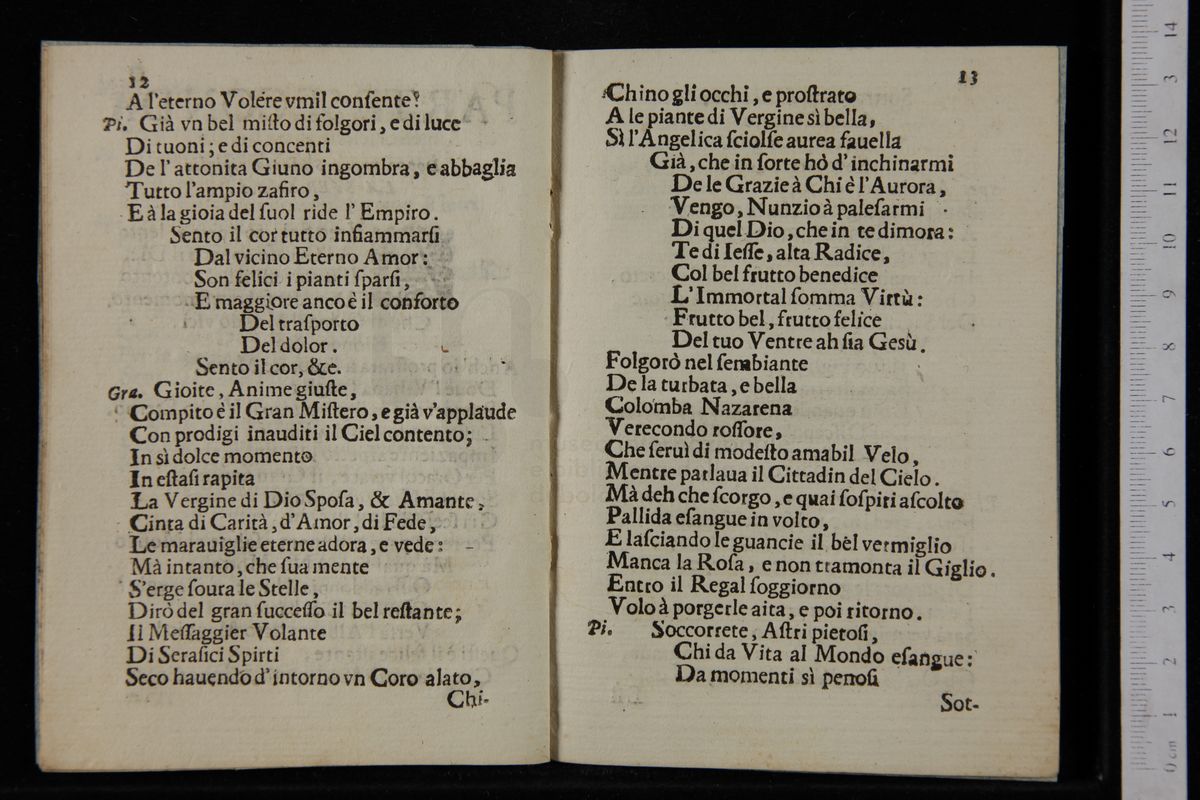 12
A l'eterno Volére vmil conſente?
Pi. Già vn bel miſto di folgori, e di luce
Di tuoni; e di concenti
De l'attonita Giuno ingombra, e abbaglia
Tutto l'ampio zafiro,
E à la gioia del ſuol ride l'Empiro.
Sento il cor tutto infiammarſi
Dal vicino Eterno Amor:
Son felici i pianti ſparſi,
E maggiore anco è il conforto
Del traſporto
Del dolor.
Sento il cor, &c.
Gra. Gioite, Anime giuſte,
Compito è il Gran Miſtero, e già v'applaude
Con prodigi inauditi il Ciel contento;
In sì dolce momento
In eſtaſi rapita
La Vergine di Dio Spoſa, & Amante,
Cinta di Carità, d'Amor, di Fede,
Le marauiglie eterne adora, e vede:
Mà intanto, che ſua mente
S'erge ſoura le Stelle,
Dirò del gran ſucceſſo il bel reſtante;
Il Meſſaggier Volante
Di Serafici Spirti
Seco hauendo d'intorno vn Coro alato,
Chi-
13
Chino gli occhi, e proſtrato
A le piante di Vergine sì bella,
Sì l'Angelica ſciolſe aurea fauella
Già, che in ſorte hò d'inchinarmi
De le Grazie à Chi è l'Aurora,
Vengo, Nunzio à paleſarmi
Di quel Dio, che in te dimora:
Te di Ieſſe, alta Radice,
Col bel frutto benedice
L'Immortal ſomma Virtù:
Frutto bel, frutto felice
Del tuo Ventre ah ſia Gesù.
Folgorò nel ſembiante
De la turbata, e bella
Colomba Nazarena
Verecondo roſſore,
Che ſeruì di modeſto amabil Velo,
Mentre parlaua il Cittadin del Cielo.
Mà deh che ſcorgo, e quai ſoſpiri aſcolto
Pallida eſangue in volto,
E laſciando le guancie il bel vermiglio
Manca la Roſa, e non tramonta il Giglio.
Entro il Regal ſoggiorno
Volo à porgerle aita, e poi ritorno.
Pi. Soccorrete, Aſtri pietoſi,
Chi da Vita al Mondo eſangue:
Da momenti sì penoſi
Sot-
0 cm 1 2 3 4 5 6 7 8 9 10 11 12 13 14